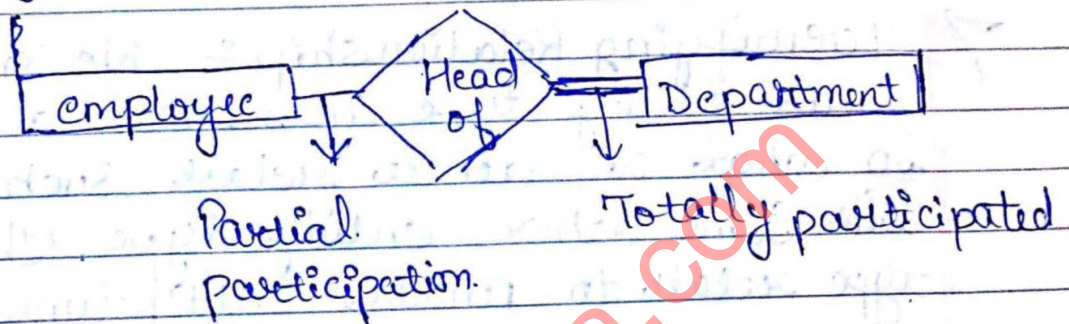 employee
Head
of
Department
Partial
participation.
Totally participated
.com